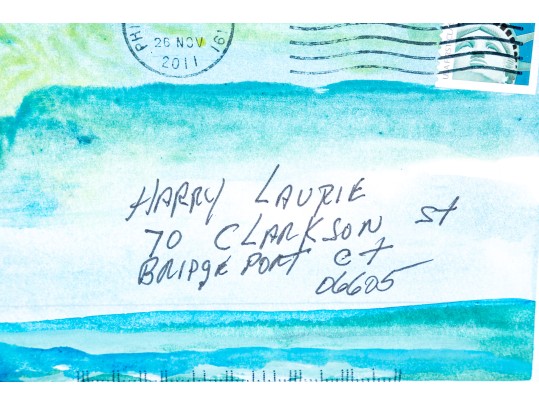 PHI
26 NOV
2011
191
HARRY LAURIE
70 CLARKSON St
BRIDGEPORT CT
06605